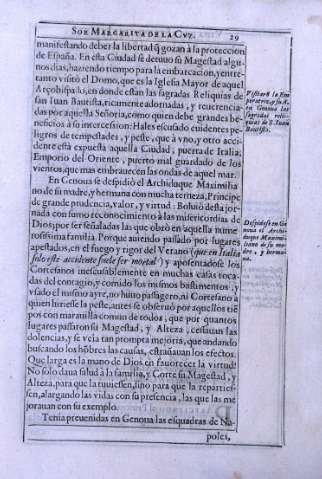 SOR MARGARITA DE LA CVZ. 29
manifestando deber la libertad q̃ gozan à la proteccion
de España. En esta Ciudad se detuuo su Magestad algu-
nos dias, haziendo tiempo para la embarcacion, y entre-
tanto visitò el Domo, que es la Iglesia Mayor de aquel
Arçobispado, en donde están las sagradas Reliquias de
san Iuan Bautista, ricamente adornadas, y reuerencia-
das por aquella Señoria, como quien debe grandes be-
neficios à su intercession: Hales escusado euidentes pe-
ligros de tempestades, y peste, que à vno, y otro acci-
dente està expuesta aquella Ciudad, puerta de Italia,
Emporio del Oriente, puerto mal guardado de los
vientos, que mas embrauecen las ondas de aquel mar.
En Genoua se despidiò el Archiduque Maximilia-
no de su madre, y hermana con mucha terneza, Principe
de grande prudencia, valor, y virtud: Boluiò desta jor-
nada con sumo reconocimiento à las misericordias de
Dios, por ser señaladas las que obrò en aquella nume-
rosissima familia. Porque auiendo passado por lugares
apestados, en el fuego y rigor del Verano (que en Italia
solo este accidente suele ser mortal) y aposentadose los
Cortesanos inescusablemente en muchas casas toca-
das del contagio, y comido los mismos bastimentos, y
vsado el mismo ayre, no huuo passagero, ni Cortesano à
quien hiriesse la peste, antes se obseruò por aquellos tiẽ-
pos con marauilla comun de todos, que por quantos
lugares passaron su Magestad, y Alteza, cessauan las
dolencias, y se veia tan prompta mejoria, que andando
buscando los hõbres las causas, estrañauan los efectos.
Que larga es la mano de Dios en fauorecer la virtud!
No solo daua salud à la familia, y Corte su Magestad, y
Alteza, para que la tuuiessen, sino para que la reparties-
sen, alargando las vidas con su presencia, las que las me
jorauan con su exemplo.
Tenia preuenidas en Genoua las esquadras de Na-
poles,
Visitarõ la Em-
peratriz, y su A.
en Genoua las
sagradas reli-
quias de S. Iuan
Bautista.
Despidese en Ge-
noua el Archidu-
que Maximi-
liano de su ma-
dre, y herma-
na.